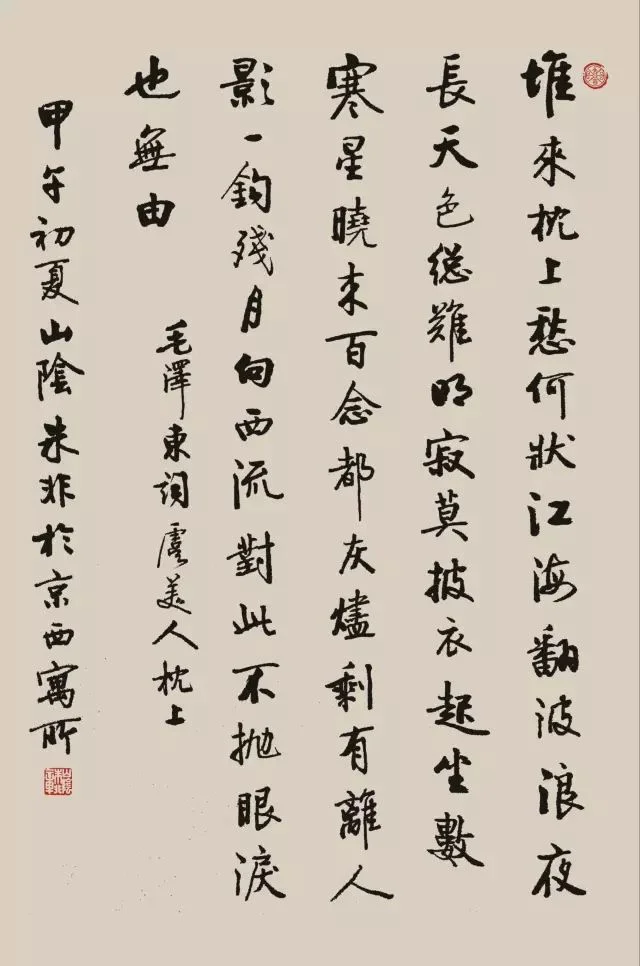 堆來枕上愁何狀江海翻波浪夜
長天色總難明寂莫披衣起坐數
寒星曉來百念都灰燼剩有離人
影一鈎殘月向西流對此不抛眼淚
也無由
毛澤東詞虞美人枕上
甲午初夏山陰朱非於京西寓所